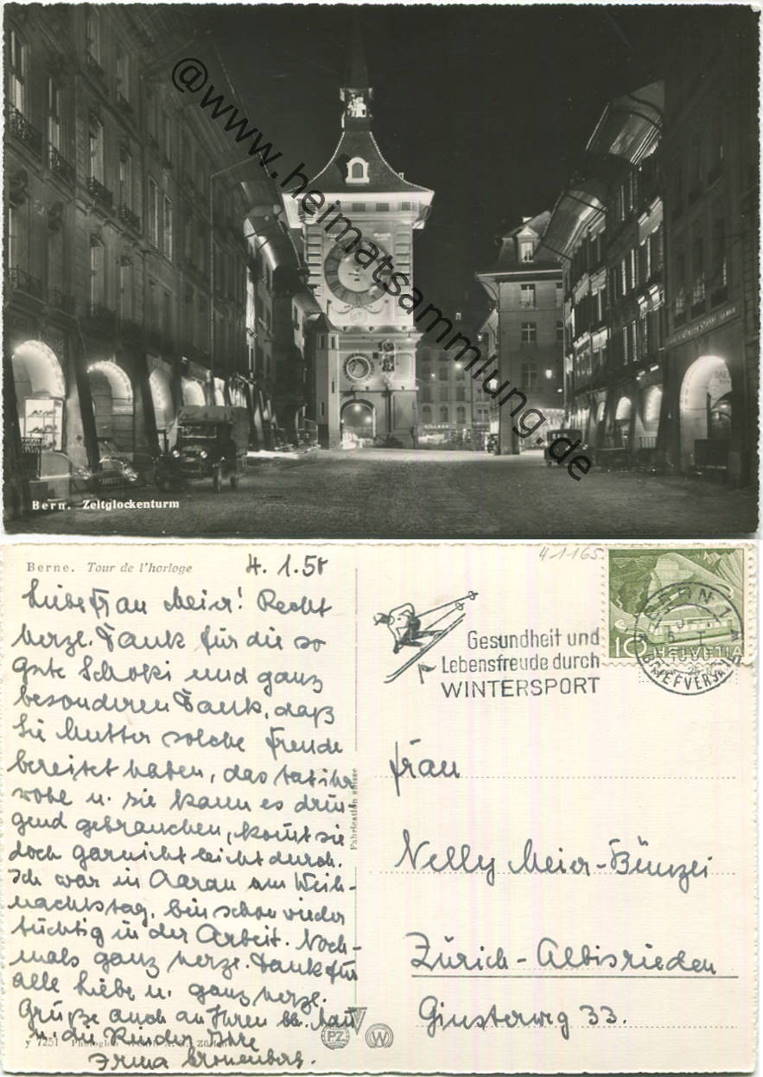 @www.heimatsammlung.de
Bern. Zeitglockenturm
Berne. Tour de l'horloge
4.1.58
Liebe Frau Meier! Recht
herzl. Dank für die so
gute Schoki und ganz
besonderen Dank, daß
Sie Mutter solche Freude
bereitet haben, das tat ihr
wohl u. sie kann es drin-
gend gebrauchen, kommt sie
doch garnicht leicht durch.
Ich war in Aarau am Weih-
nachtstag, bin schon wieder
tüchtig in der Arbeit. Noch-
mals ganz herzl. Dank für
alle Liebe u. ganz herzl.
Grüße auch an Ihren lb. Mann
u. die Kinder Ihre
Irma
y 7251
Fabrication suisse
PZ
W
4 1 165
Gesundheit und
Lebensfreude durch
WINTERSPORT
BERN 1
BRIEFVERSAND
10 HELVETIA
Frau
Nelly Meier-Bünzei
Zürich-Albisrieden
Ginsterweg 33.